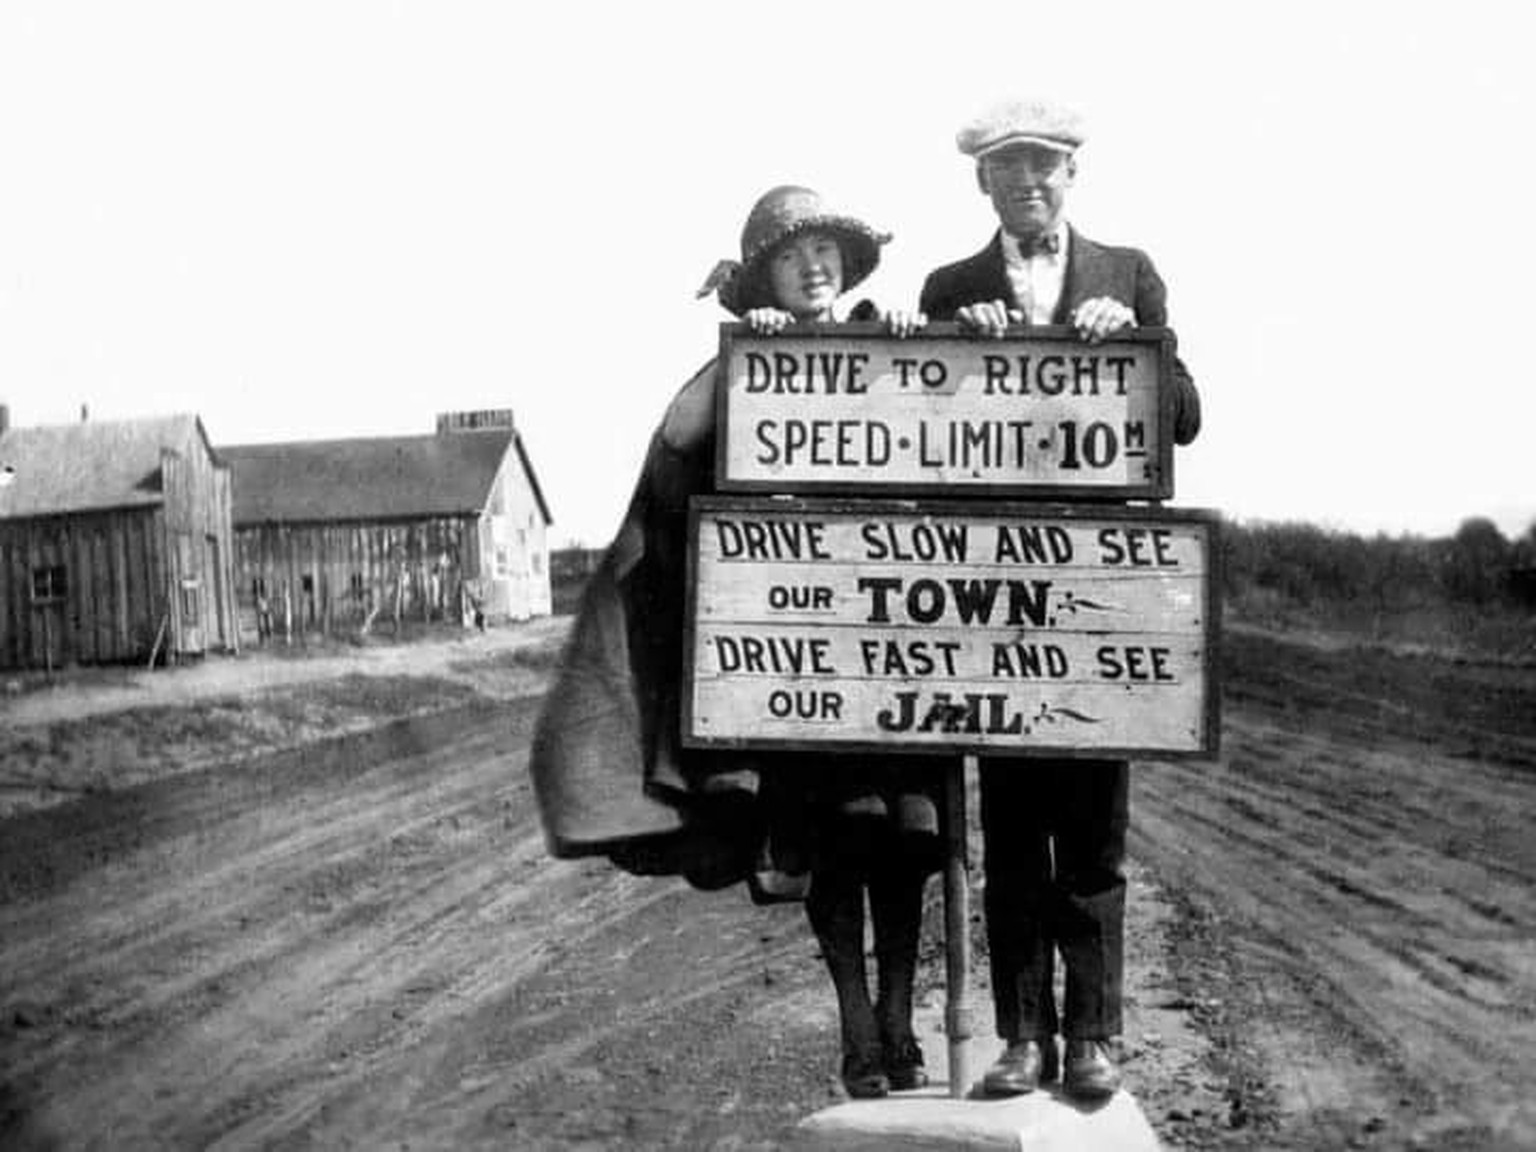 DRIVE TO RIGHT
SPEED·LIMIT·10 M
DRIVE SLOW AND SEE
OUR TOWN.
DRIVE FAST AND SEE
OUR JAIL.